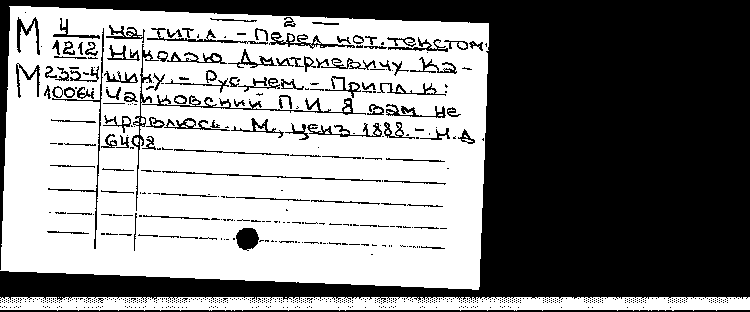 — 2 —
М 4 на тит.л. – Перед нот.текстом:
1212 Николаю Дмитриевичу Ка-
М 235-4 шину. – Рус, нем. – Припл. к:
10064 Чайковский П.И. Я вам не
нравлюсь... М., ценз. 1888. – н.д.
6402